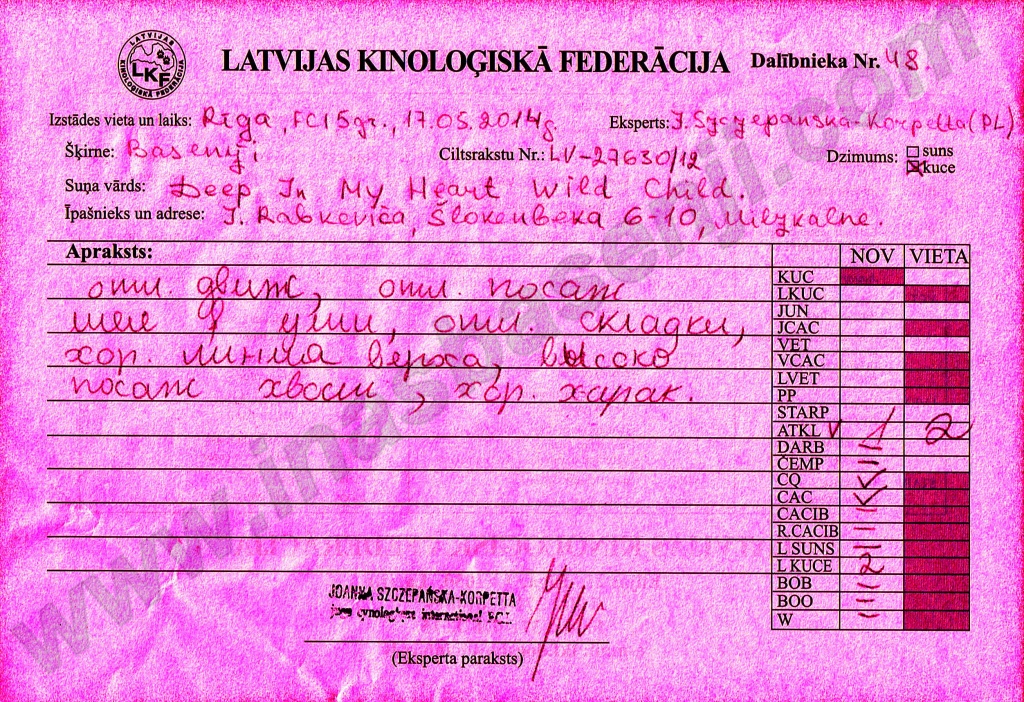 LATVIJAS KINOLOĢISKĀ FEDERĀCIJA
LKF
LATVIJAS KINOLOĢISKĀ FEDERĀCIJA Dalībnieka Nr. 48.
Izstādes vieta un laiks: Rīga, FCI 5gr., 17.05.2014g. Eksperts: J. Szczepańska-Korpetta (PL)
Šķirne: Basenji Ciltsrakstu Nr.: LV-27630/12 Dzimums: suns
kuce
Suņa vārds: Deep In My Heart Wild Child.
Īpašnieks un adrese: I. Rabkeviča, Šlokenbeka 6-10, Milzkalne.
Apraksts: NOV VIETA
отл. движ, отл. посаж
шеи и уши, отл. складки,
хор. линиа верха, высоко
посаж хвост, хор. харак.
KUC
LKUC
JUN
JCAC
VET
VCAC
LVET
PP
STARP
ATKL V 1 2
DARB
ČEMP
CQ ✓
CAC ✓
CACIB
R.CACIB
L SUNS
L KUCE 2
BOB
BOO
W
JOANNA SZCZEPAŃSKA-KORPETTA
(Eksperta paraksts)
www.inasbasenji.com